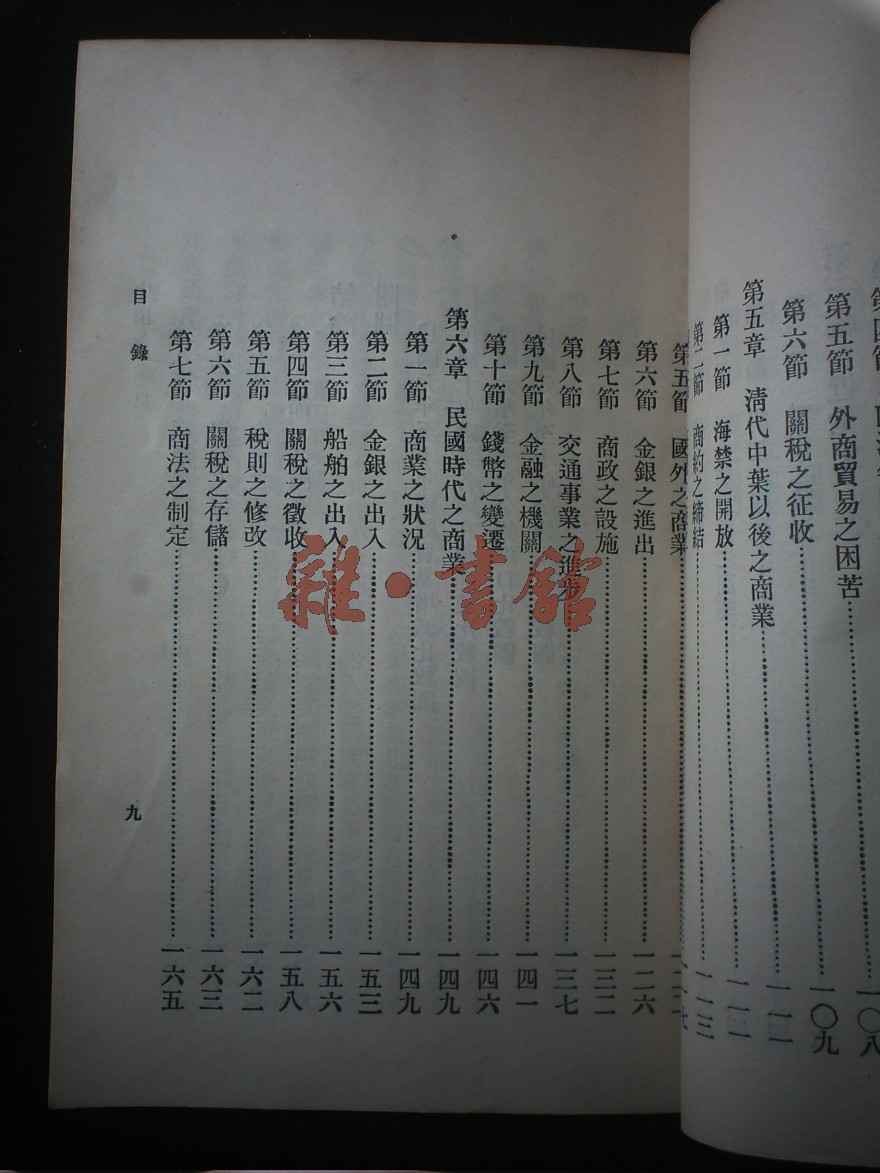 第五節 外商貿易之困苦……一〇八
第六節 關稅之征收……一〇九
第五章 清代中葉以後之商業……一一一
第一節 海禁之開放……一一一
第二節 商約之締結……一一三
第五節 國外之商業
第六節 金銀之進出……一二六
第七節 商政之設施……一三二
第八節 交通事業之進步……一三七
第九節 金融之機關……一四一
第十節 錢幣之變遷……一四六
第六章 民國時代之商業……一四九
第一節 商業之狀況……一四九
第二節 金銀之出入……一五三
第三節 船舶之出入……一五六
第四節 關稅之徵收……一五八
第五節 稅則之修改……一六二
第六節 關稅之存儲……一六三
第七節 商法之制定……一六五
目錄
九
雜·書館